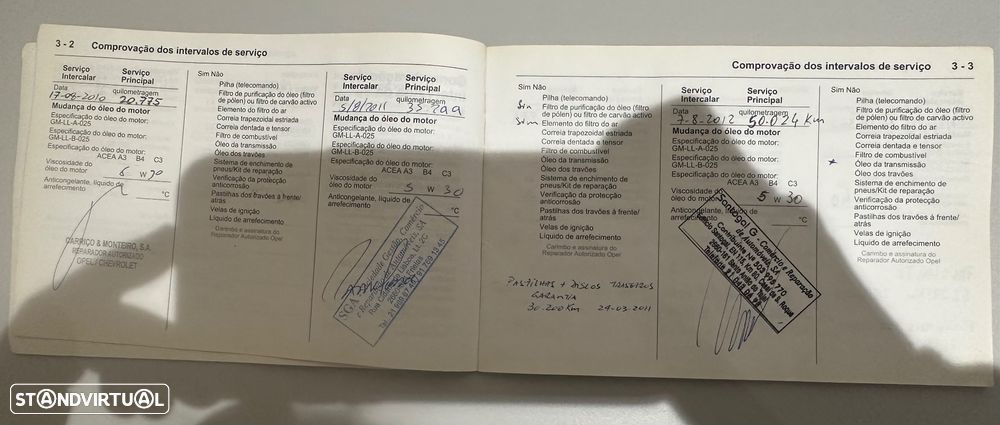 3 - 2 Comprovação dos intervalos de serviço
Serviço Intercalar
Serviço Principal
Data
quilometragem
17-08-2010 20.775
Mudança do óleo do motor
Especificação do óleo do motor:
GM-LL-A-025
Especificação do óleo do motor:
GM-LL-B-025
Especificação do óleo do motor:
ACEA A3 B4 C3
Viscosidade do
óleo do motor 5 W 30
Anticongelante, líquido de
arrefecimento °C
CARRIÇO & MONTEIRO, S.A.
REPARADOR AUTORIZADO
OPEL/CHEVROLET
Sim Não
Pilha (telecomando)
Filtro de purificação do óleo (filtro
de pólen) ou filtro de carvão activo
Elemento do filtro do ar
Correia trapezoidal estriada
Correia dentada e tensor
Filtro de combustível
Óleo da transmissão
Óleo dos travões
Sistema de enchimento de
pneus/Kit de reparação
Verificação da protecção
anticorrosão
Pastilhas dos travões à frente/
atrás
Velas de ignição
Líquido de arrefecimento
Carimbo e assinatura do
Reparador Autorizado Opel
Serviço Intercalar
Serviço Principal
Data
quilometragem
5/8/2011
Mudança do óleo do motor
Especificação do óleo do motor:
GM-LL-A-025
Especificação do óleo do motor:
GM-LL-B-025
Especificação do óleo do motor:
ACEA A3 B4 C3
Viscosidade do
óleo do motor 5 W 30
Anticongelante, líquido de
arrefecimento °C
SGA Sociedade Gestão, Comércio
e Reparação de Automóveis, SA
Comprovação dos intervalos de serviço 3 - 3
Sim Não
Pilha (telecomando)
Sim Filtro de purificação do óleo (filtro
de pólen) ou filtro de carvão activo
Sim Elemento do filtro do ar
Correia trapezoidal estriada
Correia dentada e tensor
Filtro de combustível
Óleo da transmissão
Óleo dos travões
Sistema de enchimento de
pneus/Kit de reparação
Verificação da protecção
anticorrosão
Pastilhas dos travões à frente/
atrás
Velas de ignição
Líquido de arrefecimento
Carimbo e assinatura do
Reparador Autorizado Opel
PASTILHAS + DISCOS TRASEIROS
GARANTIA
30.200 Km 24-03-2011
Serviço Intercalar
Serviço Principal
Data
quilometragem
7-8-2012 50.024 Km
Mudança do óleo do motor
Especificação do óleo do motor:
GM-LL-A-025
Especificação do óleo do motor:
GM-LL-B-025
Especificação do óleo do motor:
ACEA A3 B4 C3
Viscosidade do
óleo do motor 5 W 30
Anticongelante, líquido de
arrefecimento °C
Santogal G - Comércio e Reparação
de Automóveis, SA
Sim Não
Pilha (telecomando)
Filtro de purificação do óleo (filtro
de pólen) ou filtro de carvão activo
Elemento do filtro do ar
Correia trapezoidal estriada
Correia dentada e tensor
Filtro de combustível
Óleo da transmissão
Óleo dos travões
Sistema de enchimento de
pneus/Kit de reparação
Verificação da protecção
anticorrosão
Pastilhas dos travões à frente/
atrás
Velas de ignição
Líquido de arrefecimento
Carimbo e assinatura do
Reparador Autorizado Opel
STANDVIRTUAL